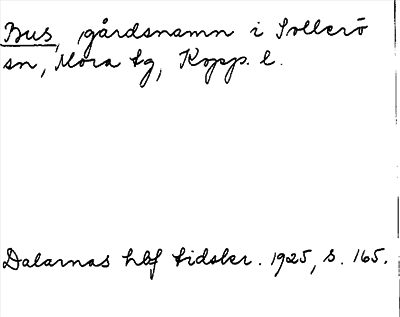 Bus, gårdsnamn i Sollerö
sn, Mora tg, Kopp. l.
Dalarnas hbf tidskr. 1925, s. 165.